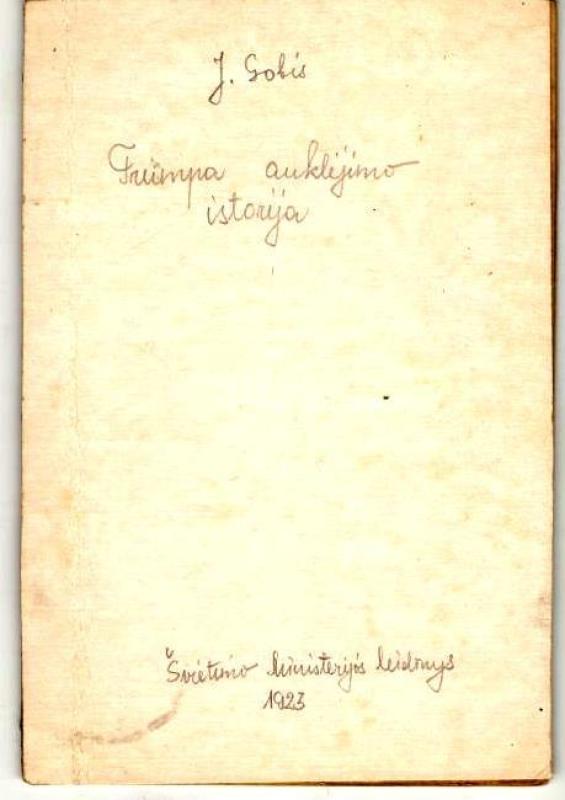 J. Gobis
Trumpa auklėjimo
istorija
Švietimo Ministerijos leidinys
1923